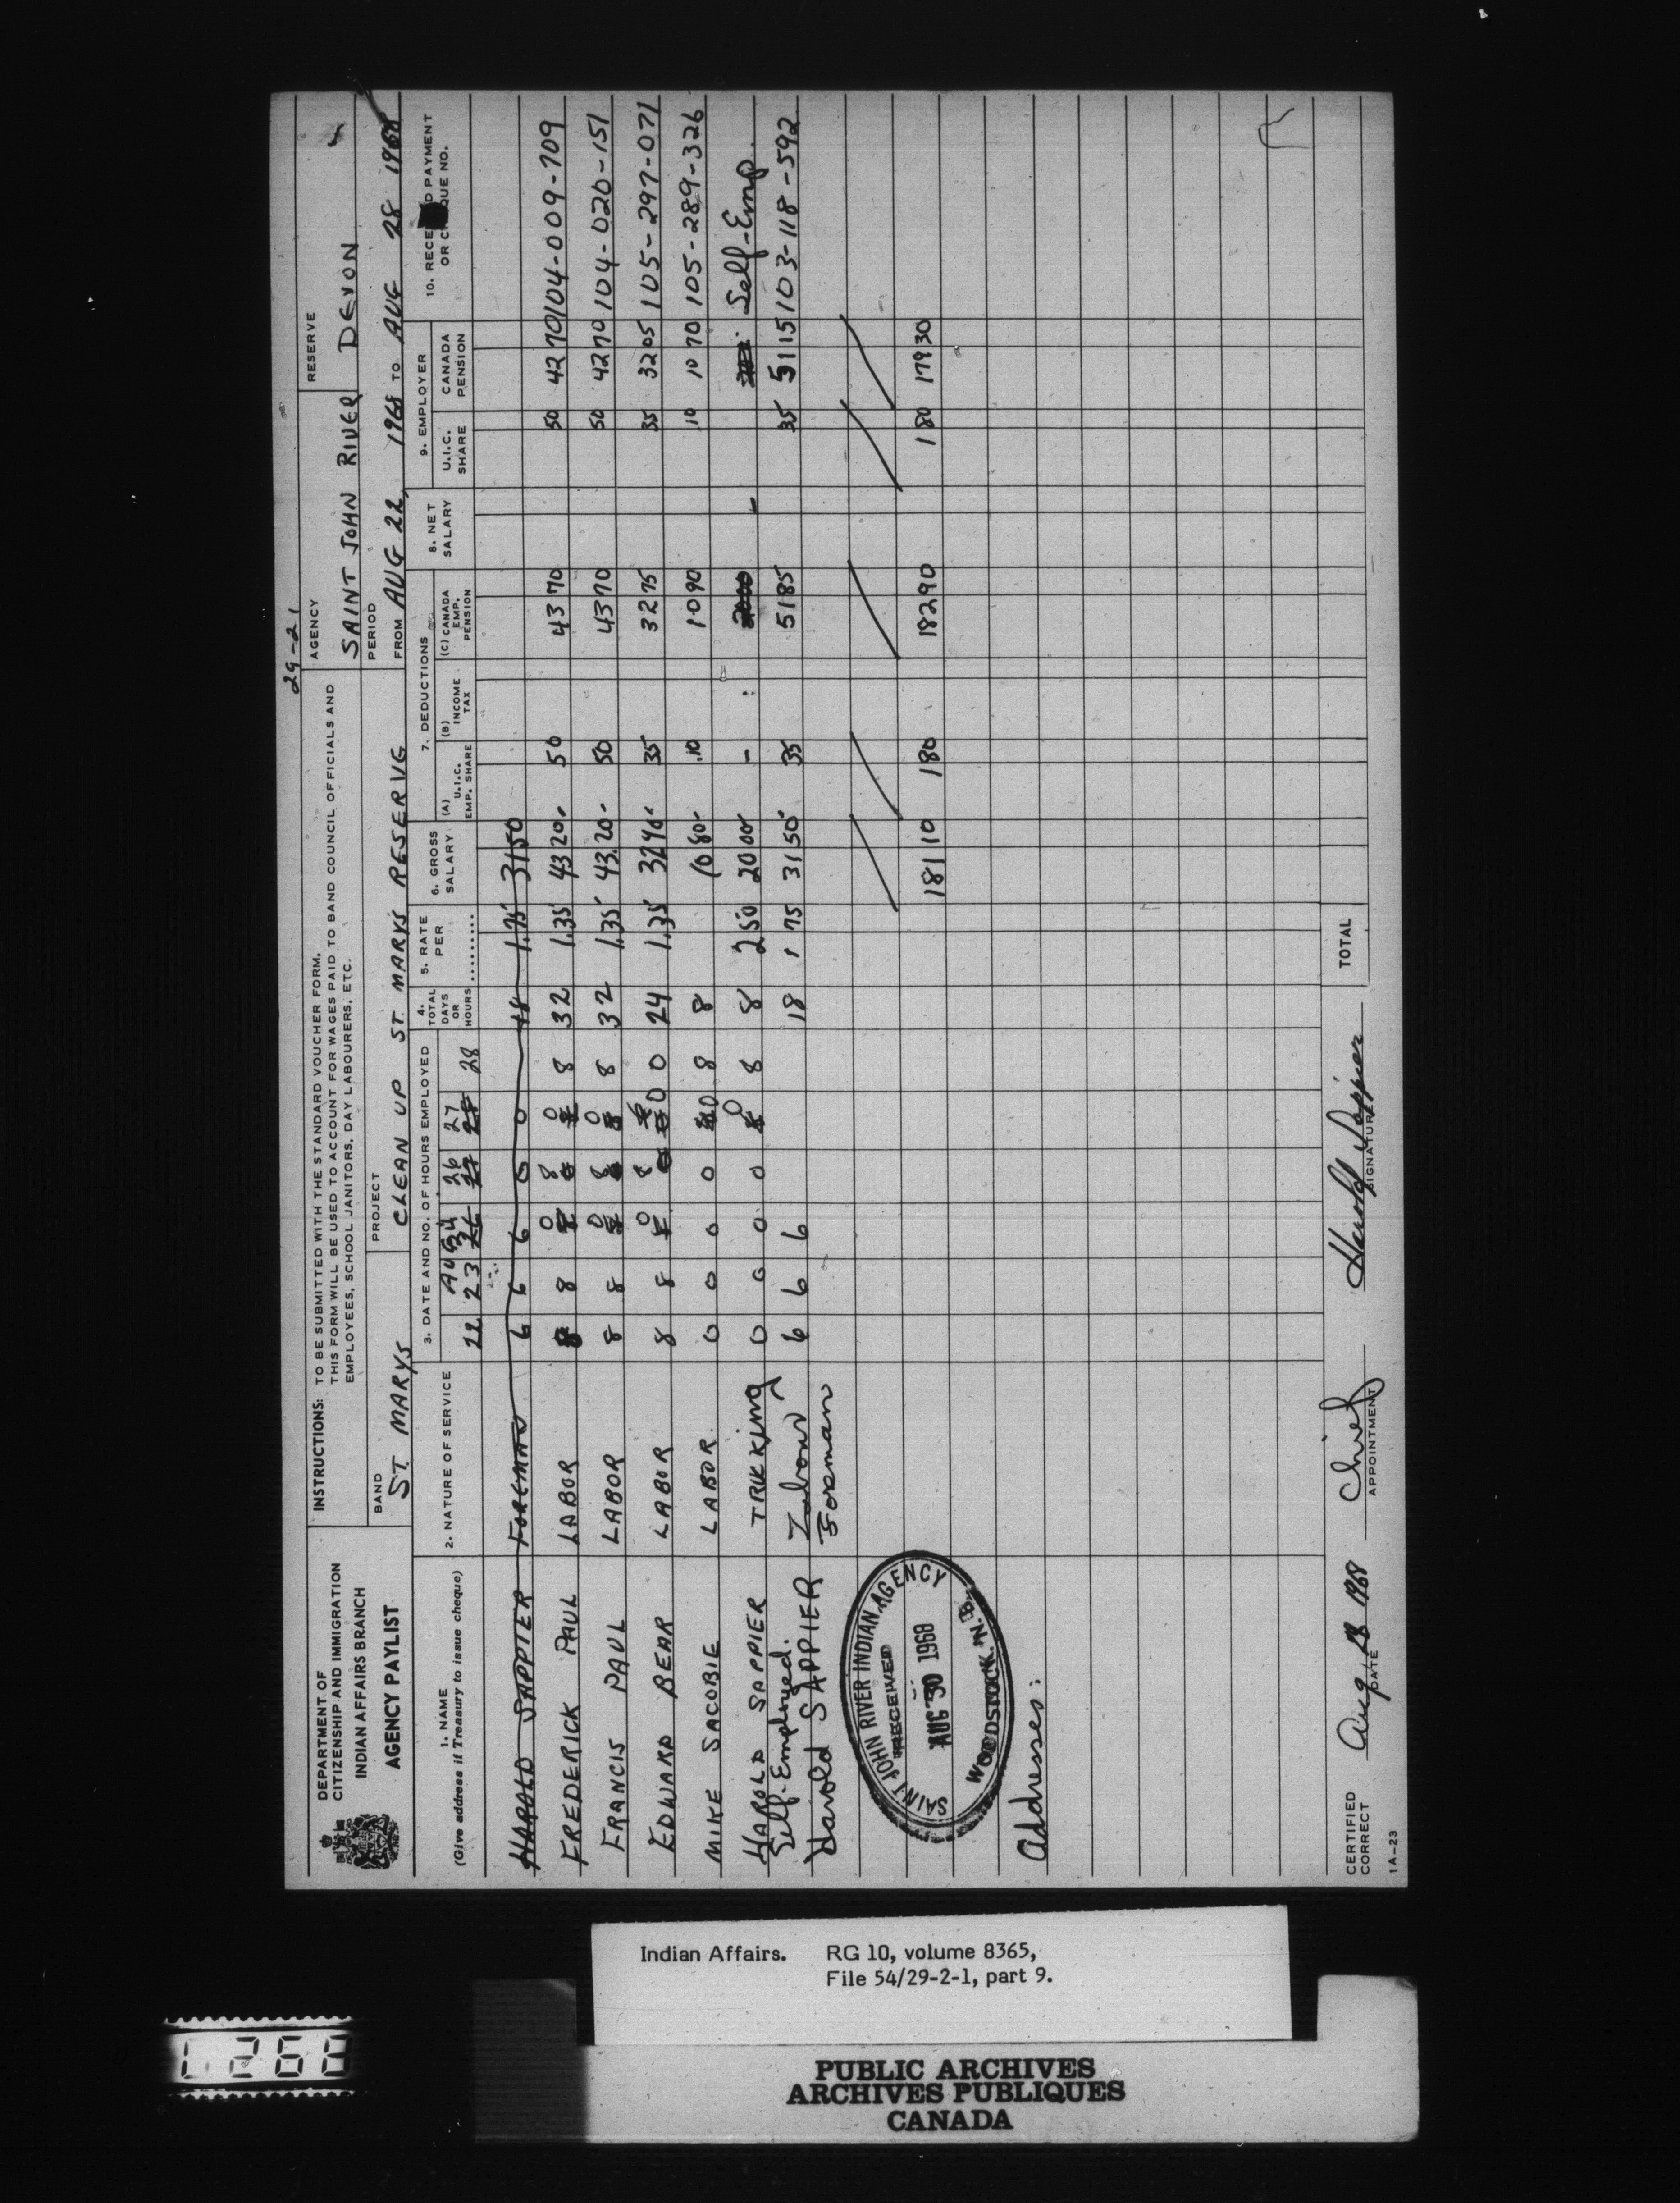 29-21
DEPARTMENT OF
CITIZENSHIP AND IMMIGRATION
INDIAN AFFAIRS BRANCH
AGENCY PAYLIST
INSTRUCTIONS: TO BE SUBMITTED WITH THE STANDARD VOUCHER FORM.
THIS FORM WILL BE USED TO ACCOUNT FOR WAGES PAID TO BAND COUNCIL OFFICIALS AND
EMPLOYEES, SCHOOL JANITORS, DAY LABOURERS, ETC.
AGENCY
SAINT JOHN RIVER
RESERVE
DEVON
BAND
ST. MARYS
PROJECT
CLEAN UP ST MARYS RESERVE
PERIOD
FROM AUG 22, 1968 TO AUG 28 1968
1. NAME
(Give address if Treasury to issue cheque)
2. NATURE OF SERVICE
3. DATE AND NO. OF HOURS EMPLOYED
Aug
22 23 24 26 27 28
4. TOTAL DAYS OR HOURS
5. RATE PER
6. GROSS SALARY
7. DEDUCTIONS
(A) U.I.C. EMP. SHARE
(B) INCOME TAX
(C) CANADA EMP. PENSION
8. NET SALARY
9. EMPLOYER
U.I.C. SHARE
CANADA PENSION
10. RECE D PAYMENT
OR C QUE NO.
HAROLD SAPPIER FOREMAN 6 6 6 0 0 18 1.75 3150
FREDERICK PAUL LABOR 8 8 0 8 0 8 32 1.35 43 20 50 43 70 50 42 70 104-009-709
FRANCIS PAUL LABOR 8 8 0 8 0 8 32 1.35 43.20 50 43 70 50 42 70 104-020-151
EDWARD BEAR LABOR 8 8 0 8 0 0 24 1.35 32 40 35 32 75 35 32 05 105-297-071
MIKE SACOBIE LABOR 0 0 0 0 0 8 8 10 80 .10 10 90 10 10 70 105-289-326
HAROLD SAPPIER TRUKKING 0 0 0 0 0 8 8 2 50 20 00 - Self-Emp.
Self-Employed.
Harold SAPPIER Labour Foreman 6 6 6 18 1 75 31 50 35 51 85 35 51 15 103-118-592
181 10 1 80 182 90 1 80 179 30
SAINT JOHN RIVER INDIAN AGENCY
RECEIVED
AUG 30 1968
WOODSTOCK, N.B.
Addresses:
CERTIFIED CORRECT
Aug 28 1968
DATE
Chief
APPOINTMENT
Harold Sappier
SIGNATURE
TOTAL
1A-23
Indian Affairs. RG 10, volume 8365,
File 54/29-2-1, part 9.
PUBLIC ARCHIVES
ARCHIVES PUBLIQUES
CANADA